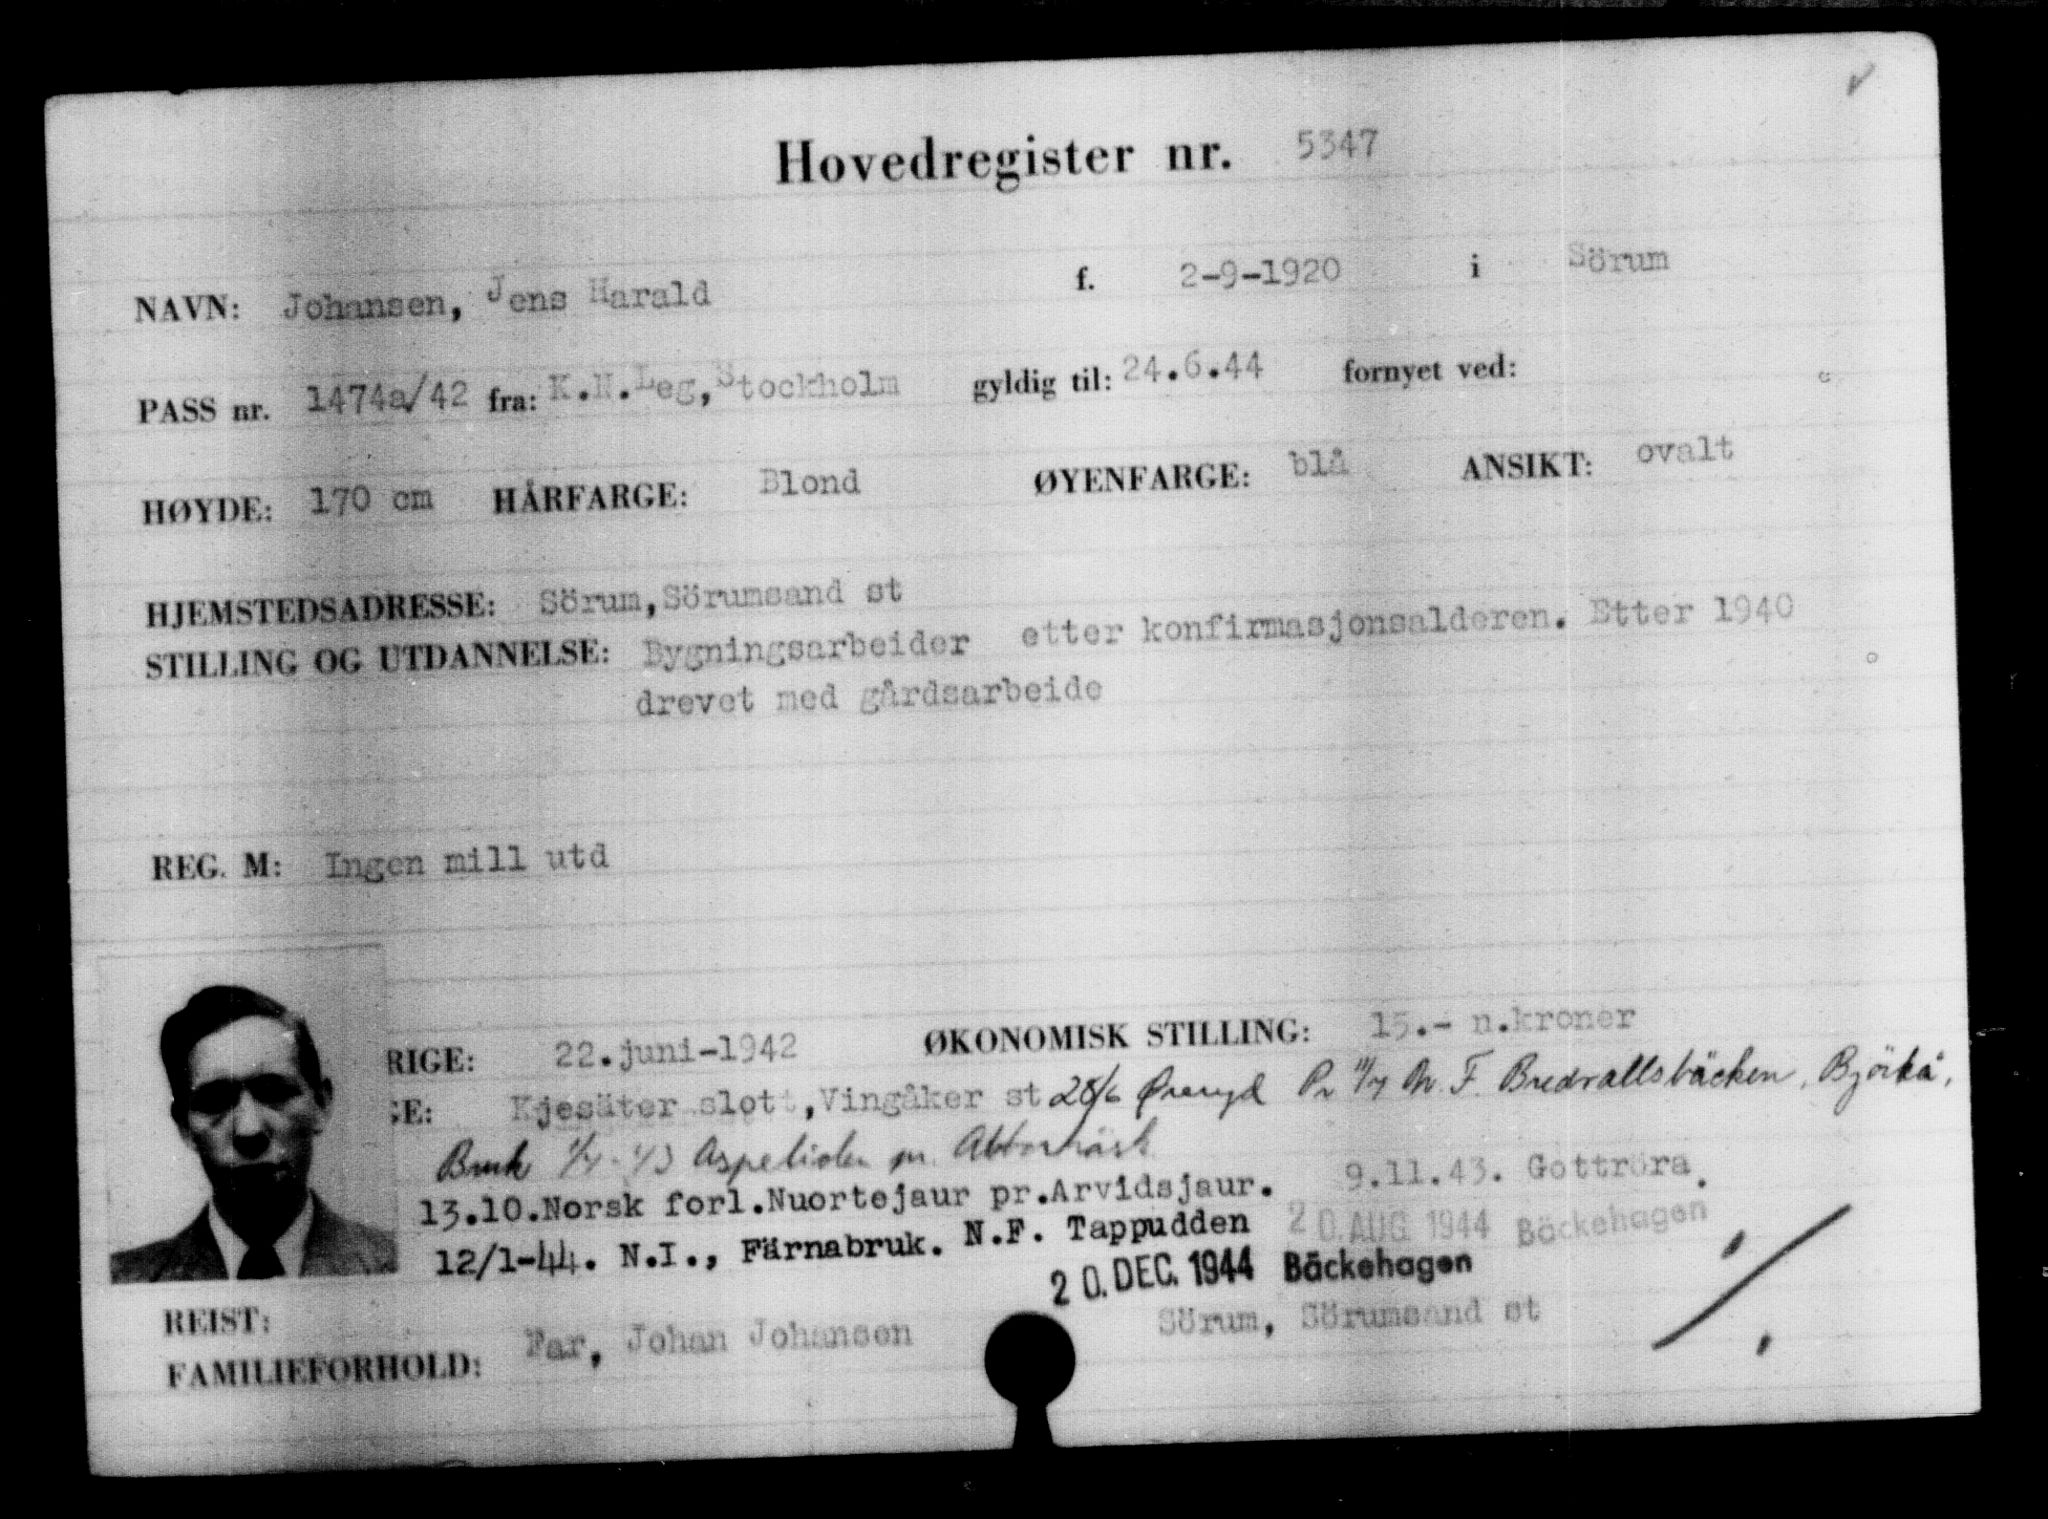 Hovedregister nr. 5347
NAVN: Johansen, Jens Harald f. 2-9-1920 i Sörum
PASS nr. 1474a/42 fra: K.N.Leg, Stockholm gyldig til: 24.6.44 fornyet ved:
HØYDE: 170 cm HÅRFARGE: Blond ØYENFARGE: blå ANSIKT: ovalt
HJEMSTEDSADRESSE: Sörum, Sörumsand st
STILLING OG UTDANNELSE: Bygningsarbeider etter konfirmasjonsalderen. Etter 1940
drevet med gårdsarbeide
REG. M: Ingen mill utd
RIGE: 22.juni-1942 ØKONOMISK STILLING: 15.- n.kroner
GE: Kjesäter slott, Vingåker st 28/6 Pr N.F. Bredvallsbäcken, Björkå,
Bruk
13.10.Norsk forl.Nuortejaur pr.Arvidsjaur. 9.11.43. Gottröra.
12/1-44. N.I., Färnabruk. N.F. Tappudden 20.AUG 1944 Bäckehagen
20.DEC. 1944 Bäckehagen
REIST:
FAMILIEFORHOLD: Far, Johan Johansen Sörum, Sörumsand st